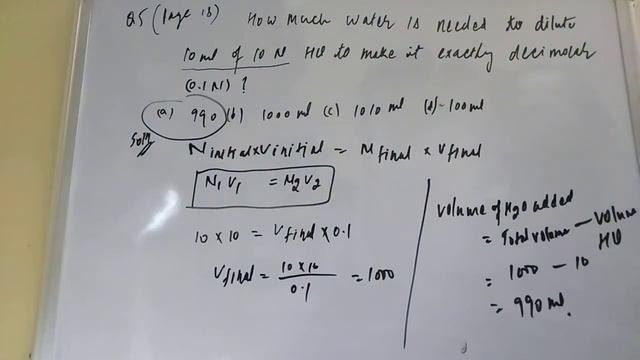 Q5 (Page 18) How Much water Is needed to dilute
10 ml of 10 N HCl to make it exactly decimolar
(0.1 N) ?
(a) 990 (b) 1000 ml (c) 1010 ml (d) 100 ml
Soln
Ninitial x Vinitial = Mfinal x Vfinal
N1 V1 = M2 V2
10 x 10 = Vfinal x 0.1
Vfinal = 10 x 10 / 0.1 = 1000
Volume of H2O added
= Total volume - volume HCl
= 1000 - 10
= 990 ml.